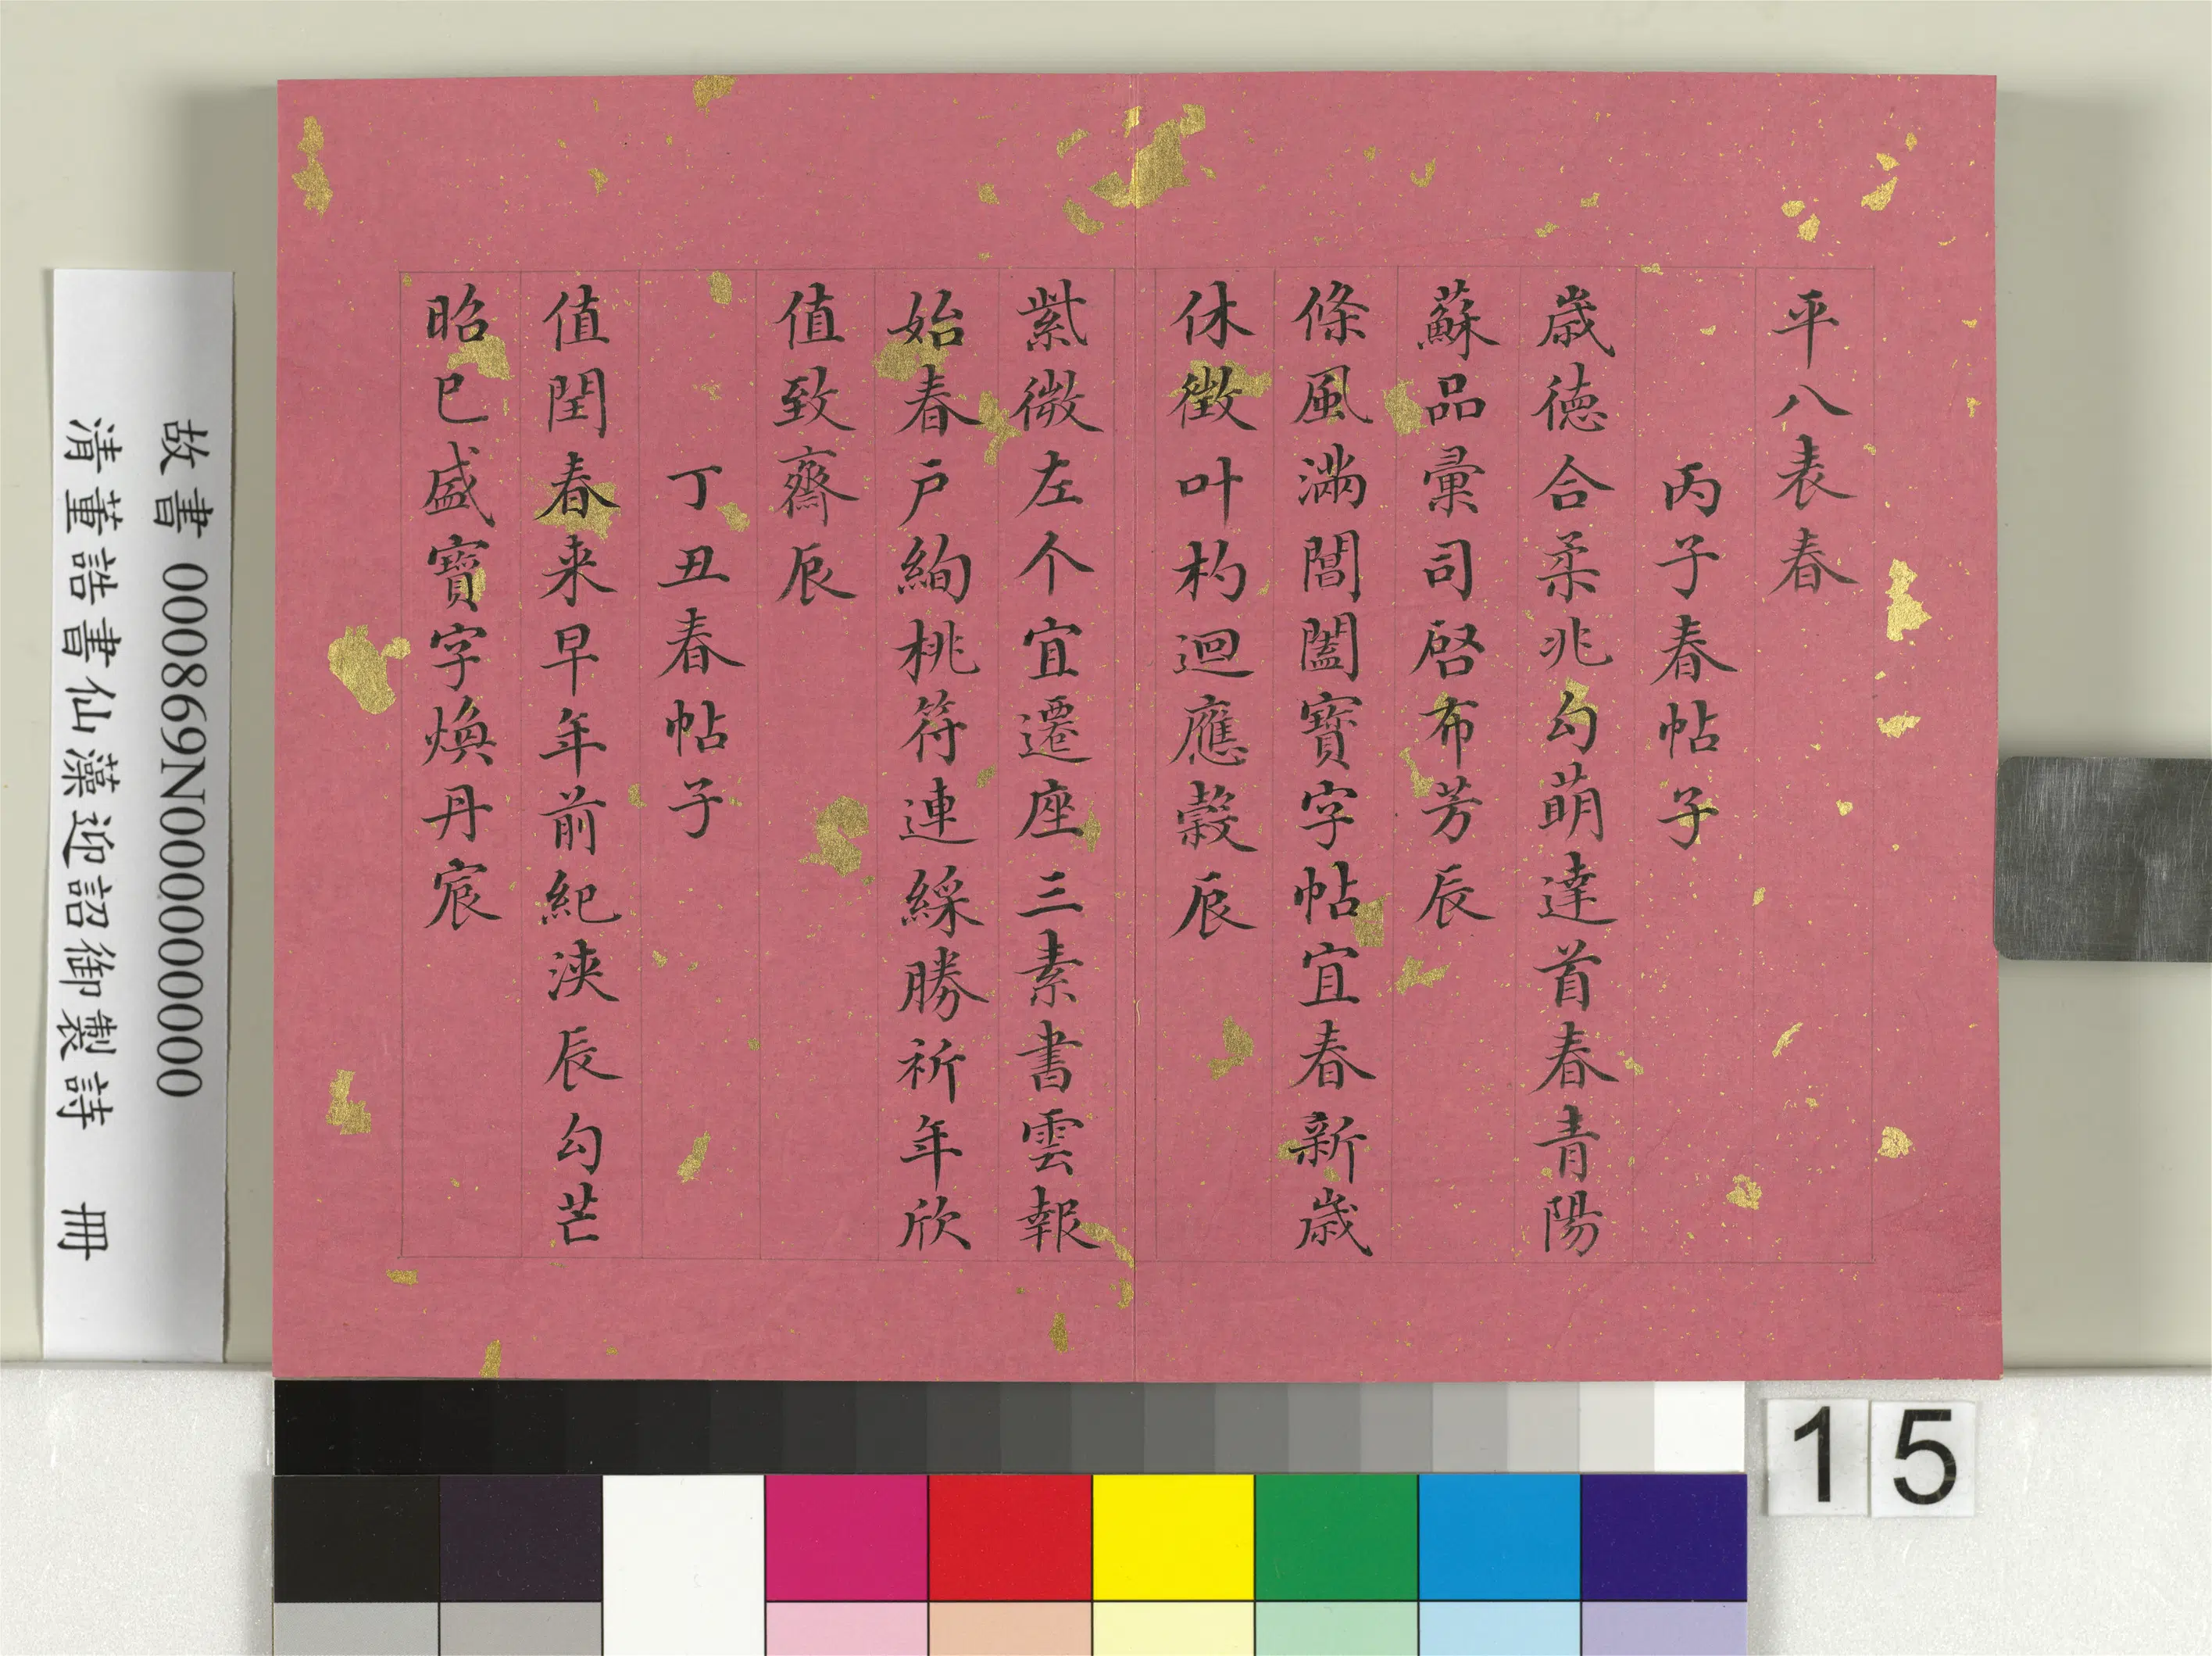 平八表春
丙子春帖子
歲德合柔兆勾萌達首春青陽
蘇品彙司啟布芳辰
條風滿閶闔寶字帖宜春新歲
休徵叶杓迴應穀辰
紫微左个宜遷座三素書雲報
始春戶絢桃符連綵勝祈年欣
值致齋辰
丁丑春帖子
值閏春来早年前紀浹辰勾芒
昭已盛寶字煥丹宸
故書 000869N000000000
清董誥書仙藻迎詔御製詩 冊
15